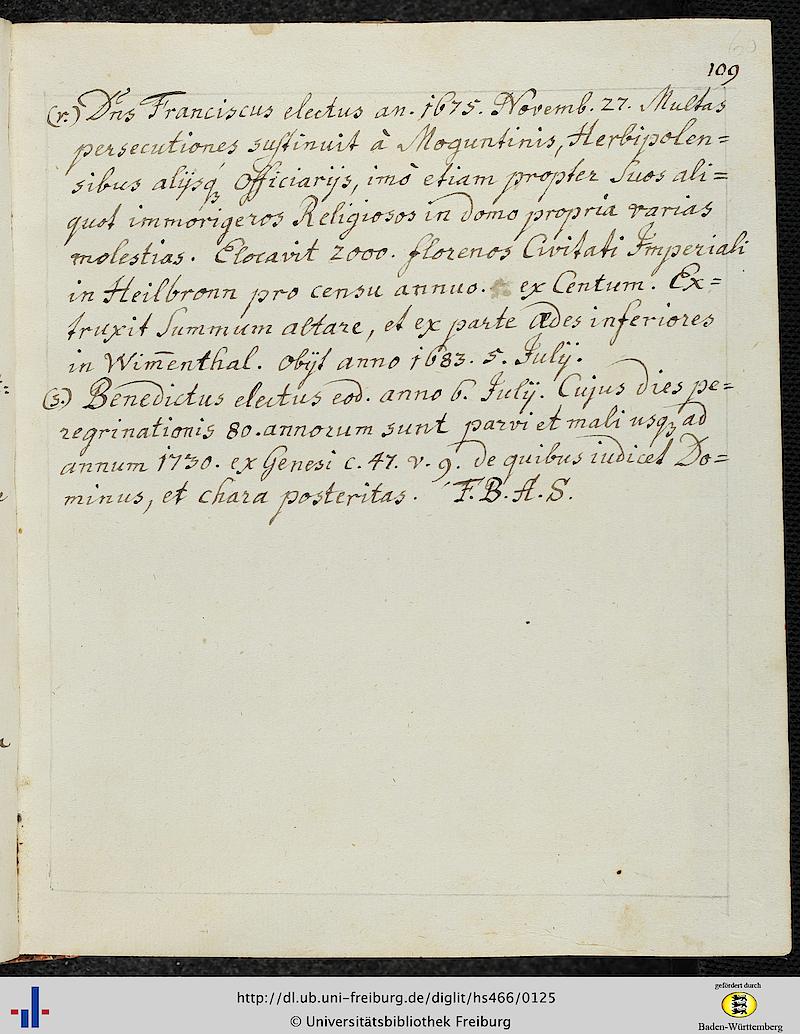 60
109
(r.) Dn̄s Franciscus electus an. 1675. Novemb. 27. Multas
persecutiones sustinuit à Moguntinis, Herbipolen=
sibus alijsqꝫ Officiarijs, imò etiam propter Suos ali=
quot immorigeros Religiosos in domo propria varias
molestias. Elocavit 2000. florenos Civitati Imperiali
in Heilbronn pro censu annuo. ex Centum. Ex=
truxit Summum altare, et ex parte ædes inferiores
in Wim̄enthal. obijt anno 1683. 5. Julij.
(s.) Benedictus electus eod. anno 6. Julij. Cujus dies pe=
regrinationis 80. annorum sunt parvi et mali usqꝫ ad
annum 1730. ex Genesi c. 47. v. 9. de quibus iudicet Do=
minus, et chara posteritas. F. B. A. S.
http://dl.ub.uni-freiburg.de/diglit/hs466/0125
© Universitätsbibliothek Freiburg
gefördert durch
Baden-Württemberg